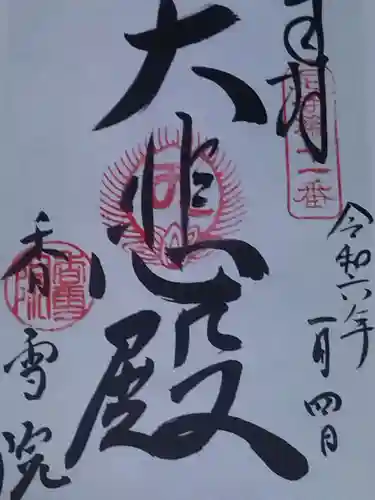 奉拝
令和六年
一月四日
大悲殿
香雪院